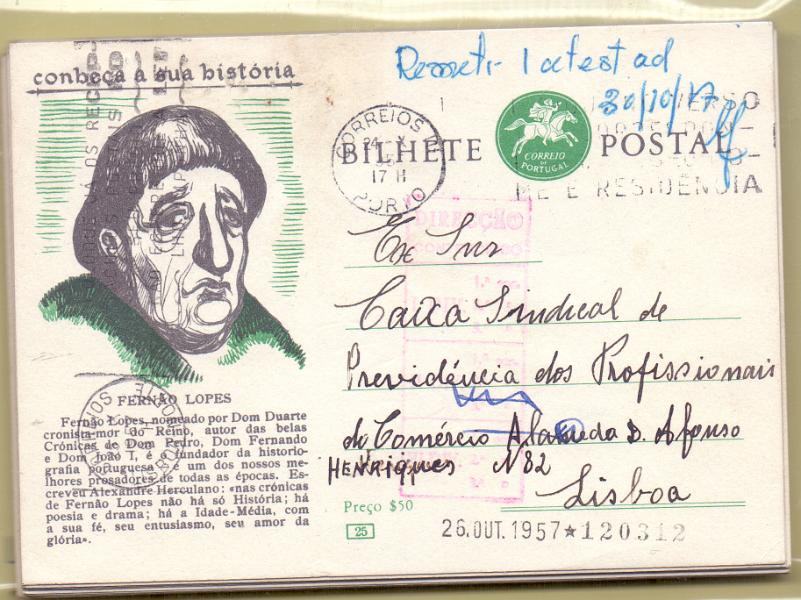 conheça a sua história
30/10/57
CORREIOS
24 X
17 H
PORTO
BILHETE POSTAL
CORREIO
DE
PORTUGAL
ME E RESIDÊNCIA
DIRECÇÃO
Ex Snr
Caixa Sindical de
Previdência dos Profissionais
do Comércio Alameda D. Afonso
HENRIQUES N 82
Lisboa
FERNÃO LOPES
Fernão Lopes, nomeado por Dom Duarte
cronista-mor do Reino, autor das belas
Crónicas de Dom Pedro, Dom Fernando
e Dom João I, é o fundador da historio-
grafia portuguesa e um dos nossos me-
lhores prosadores de todas as épocas. Es-
creveu Alexandre Herculano: «nas crónicas
de Fernão Lopes não há só História; há
poesia e drama; há a Idade-Média, com
a sua fé, seu entusiasmo, seu amor da
glória».
Preço $50
25
26.OUT.1957★120312